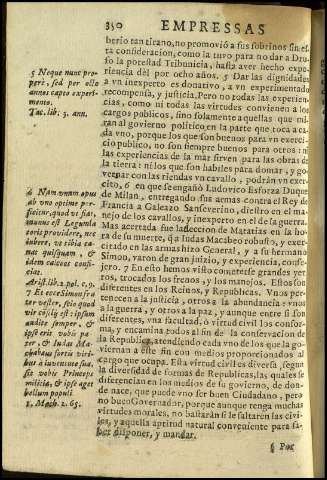 350 EMPRESSAS
berio tan ticano, no promovió a sus sobrinos sin es-
ta consideracion, como la tuvo para no dar a Dru-
so la potestad Tribunicia, hasta aver hecho expe-
riencia dèl por ocho años. 5 Dar las dignidades
a vn inexperto es donativo, a vn experimentado
recompensa, y justicia. Pero no todas las experien-
cias, como ni todas las virtudes convienen a los
cargos publicos, sino solamente a aquellas que mi-
ran al govierno politico en la parte que toca a ca-
da vno, porque los que son buenos para vn exerci-
cio publico, no son siempre buenos para otros: ni
las experiencias de la mar sirven para las obras de
la tierra: ni los que son habiles para domar, y go-
vernar con las riendas vn cavallo, podràn vn exer-
cito, 6 en que se engañò Ludovico Esforza Duque
de Milan, entregando sus armas contra el Rey de
Francia a Galeazo Sanseverino, diestro en el ma-
nejo de los cavallos, y inexperto en el de la guerra.
Mas acertada fue la eleccion de Matatias en la ho-
ra de su muerte, que a Iudas Macabeo robusto, y exer-
citado en las armas hizo General, y a su hermano
Simon, varon de gran juizio, y experiencia, conse-
jero. 7 En esto hemos visto cometerse grandes yer-
ros, trocados los frenos, y los manejos. Estos son
diferentes en los Reinos, y Republicas. Vnos per-
tenecen a la justicia, otros a la abundancia, vnos
a la guerra, y otros a la paz, y aunque entre sì son
diferentes, vna facultad, o virtud civil los confor-
ma, y encamina todos al fin de la conservacion de
la Republica, atendiendo cada vno de los que la go-
viernan a este fin con medios proporcionados al
cargo que ocupa. Esta virtud civil es diversa, segun
la diversidad de formas de Republicas, las quales se
diferencian en los medios de su govierno, de don-
de nace, que puede vno ser buen Ciudadano, pero
no buen Governador, porque aunque tenga muchas
virtudes morales, no bastaràn si le faltaren las civi-
les, y aquella aptitud natural conveniente para sa-
ber disponer, y mandar.
§ Por
5 Neque nunc pro-
perè, sed per octo
annos capto experi-
mento.
Tac. lib. 3. ann.
6 Nam vnum opus
ab vno optime per-
ficitur, quod vt fiat,
munus est Legumla-
toris providere, nec
iubere, vt tibia ca-
nat quispiam, &
idem calceos confi-
ciat.
Arist. lib. 2. pol. c. 9.
7 Et ecce Simon fra
ter vester, scio quod
vir consilij est: ipsum
audite semper, &
ipse erit vobis pa-
ter, & Iudas Ma-
chabæus fortis viri-
bus a iuventute sua,
sit vobis Princeps
militiæ, & ipse aget
bellum populi.
1. Mach. 2. 65.